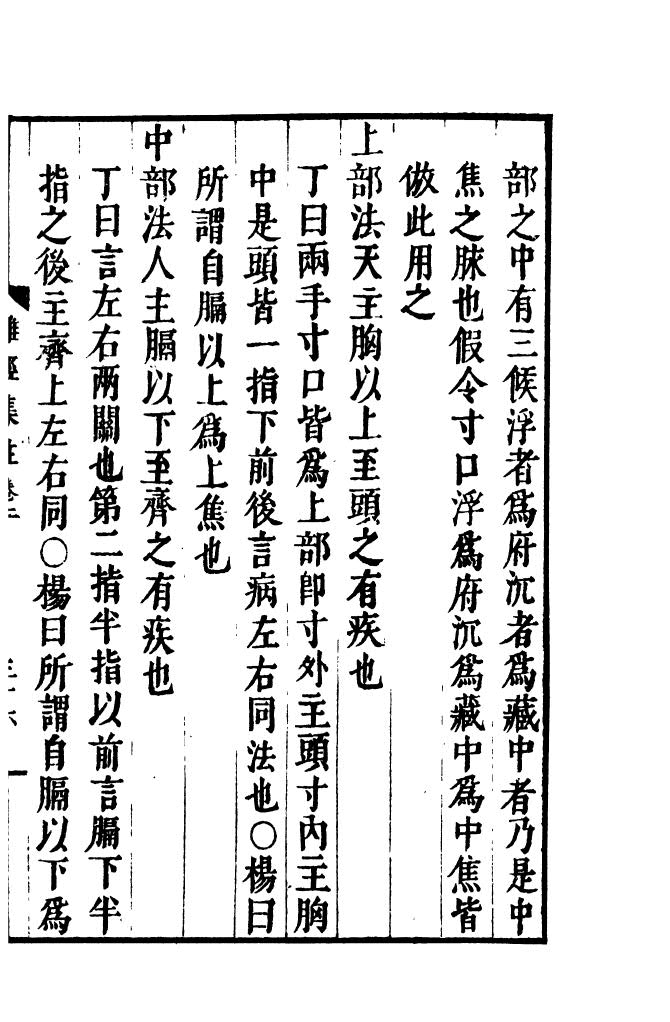 部之中有三候浮者爲府沉者爲藏中者乃是中
焦之脉也假令寸口浮爲府沉爲藏中爲中焦皆
倣此用之
上部法天主胸以上至頭之有疾也
丁曰兩手寸口皆爲上部卽寸外主頭寸內主胸
中是頭皆一指下前後言病左右同法也○楊曰
所謂自膈以上爲上焦也
中部法人主膈以下至齊之有疾也
丁曰言左右兩關也第二指半指以前言膈下半
指之後主齊上左右同○楊曰所謂自膈以下爲
難經集註卷二